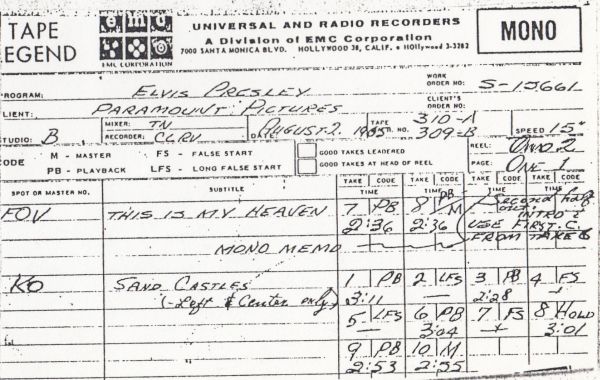 TAPE LEGEND
emc
EMC CORPORATION
UNIVERSAL AND RADIO RECORDERS
A Division of EMC Corporation
7000 SANTA MONICA BLVD. HOLLYWOOD 38, CALIF. • HOllywood 3-3282
MONO
PROGRAM: ELVIS PRESLEY
WORK ORDER NO: S-15661
CLIENT: PARAMOUNT PICTURES
CLIENT'S ORDER NO:
STUDIO: B
MIXER: TN
RECORDER: CLRV
DATE: AUGUST 2, 1965
TAPE NO. 310-A
309-B
SPEED 15"
CODE
M - MASTER FS - FALSE START
PB - PLAYBACK LFS - LONG FALSE START
GOOD TAKES LEADERED
GOOD TAKES AT HEAD OF REEL
REEL: ONE of 2
PAGE: ONE - 1
SPOT OR MASTER NO. SUBTITLE TAKE CODE TAKE CODE TAKE CODE TAKE CODE
TIME TIME TIME TIME
FOV THIS IS MY HEAVEN 7 PB 8 PB/M Second half
out. INTRO &
2:36 2:36 USE FIRST. C.
MONO MEMO FROM TAKE 6
KO SAND CASTLES 1 PB 2 LFS 3 PB 4 FS
(-Left & Center only) 3:11 — 2:28 —
5 LFS 6 PB 7 FS 8 HOLD
— 3:04 3:01
9 PB 10 M
2:53 2:55